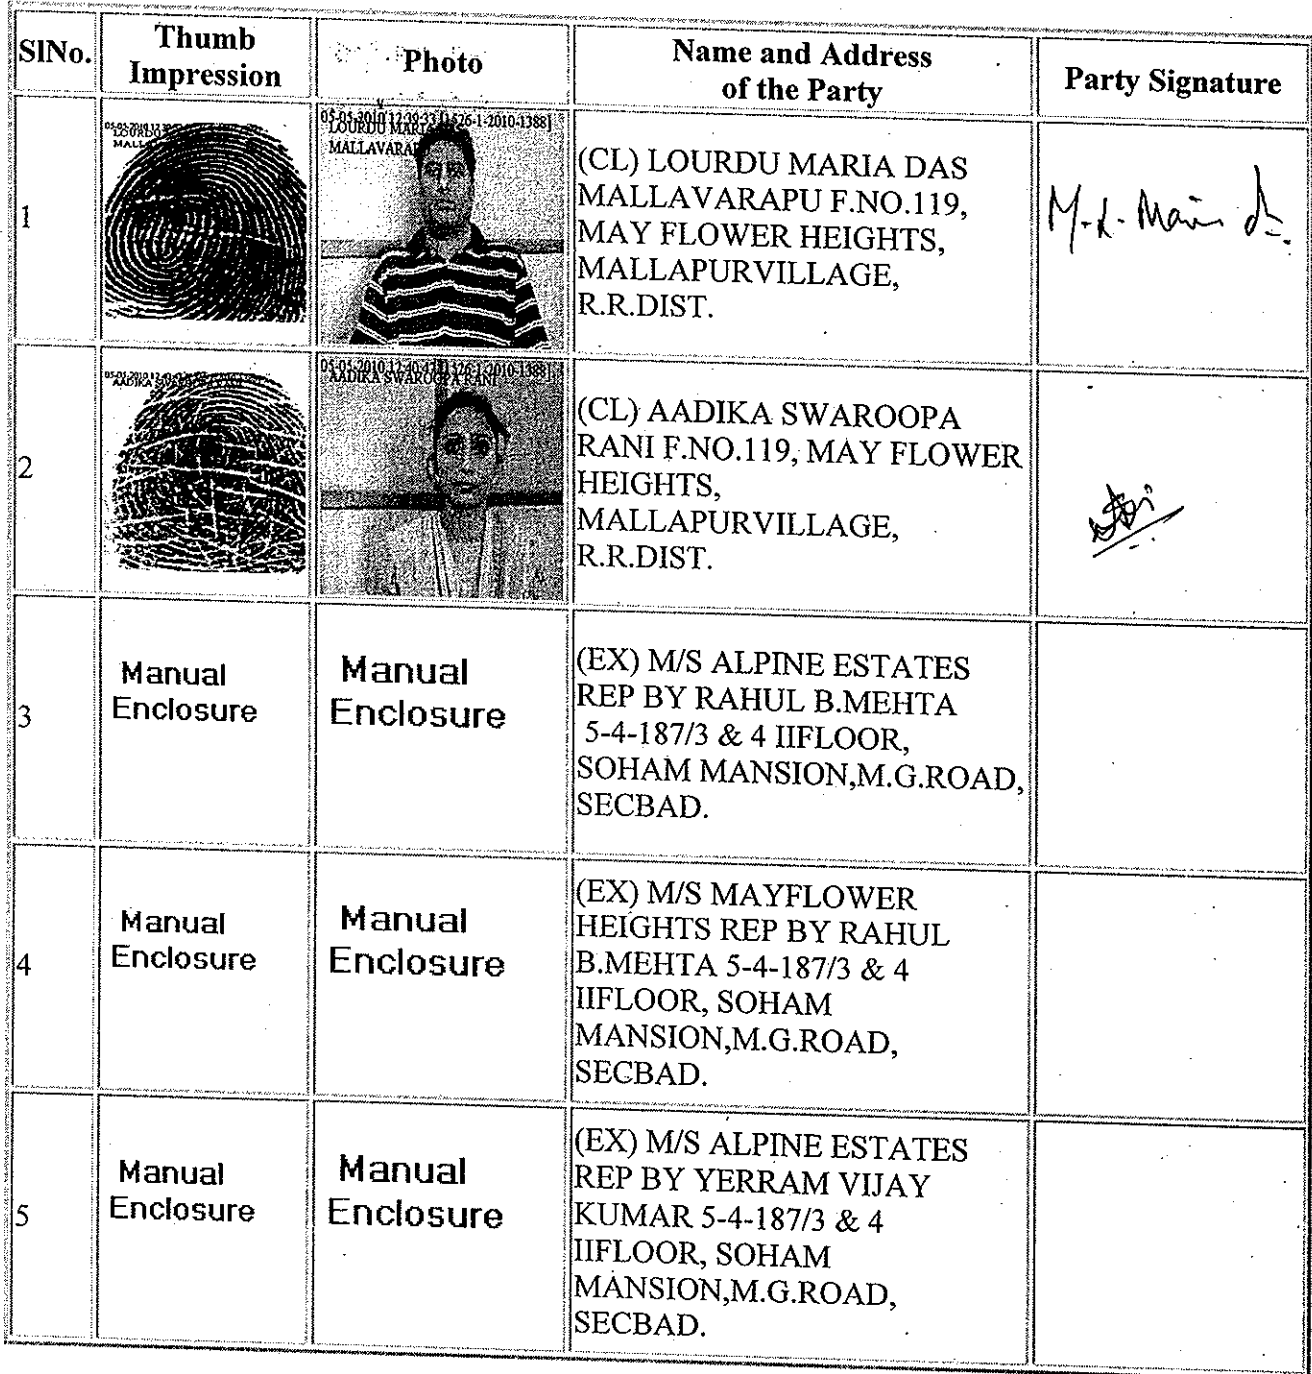 SlNo.
Thumb
Impression
Photo
Name and Address
of the Party
Party Signature
1
05-05-2010 12:39:33 [1526-1-2010-1388]
LOURDU MARIA
MALLAVARAPU
(CL) LOURDU MARIA DAS
MALLAVARAPU F.NO.119,
MAY FLOWER HEIGHTS,
MALLAPURVILLAGE,
R.R.DIST.
M.L. Maria
2
AADIKA SWAROOPA RANI
(CL) AADIKA SWAROOPA
RANI F.NO.119, MAY FLOWER
HEIGHTS,
MALLAPURVILLAGE,
R.R.DIST.
3
Manual
Enclosure
Manual
Enclosure
(EX) M/S ALPINE ESTATES
REP BY RAHUL B.MEHTA
5-4-187/3 & 4 IIFLOOR,
SOHAM MANSION,M.G.ROAD,
SECBAD.
4
Manual
Enclosure
Manual
Enclosure
(EX) M/S MAYFLOWER
HEIGHTS REP BY RAHUL
B.MEHTA 5-4-187/3 & 4
IIFLOOR, SOHAM
MANSION,M.G.ROAD,
SECBAD.
5
Manual
Enclosure
Manual
Enclosure
(EX) M/S ALPINE ESTATES
REP BY YERRAM VIJAY
KUMAR 5-4-187/3 & 4
IIFLOOR, SOHAM
MANSION,M.G.ROAD,
SECBAD.